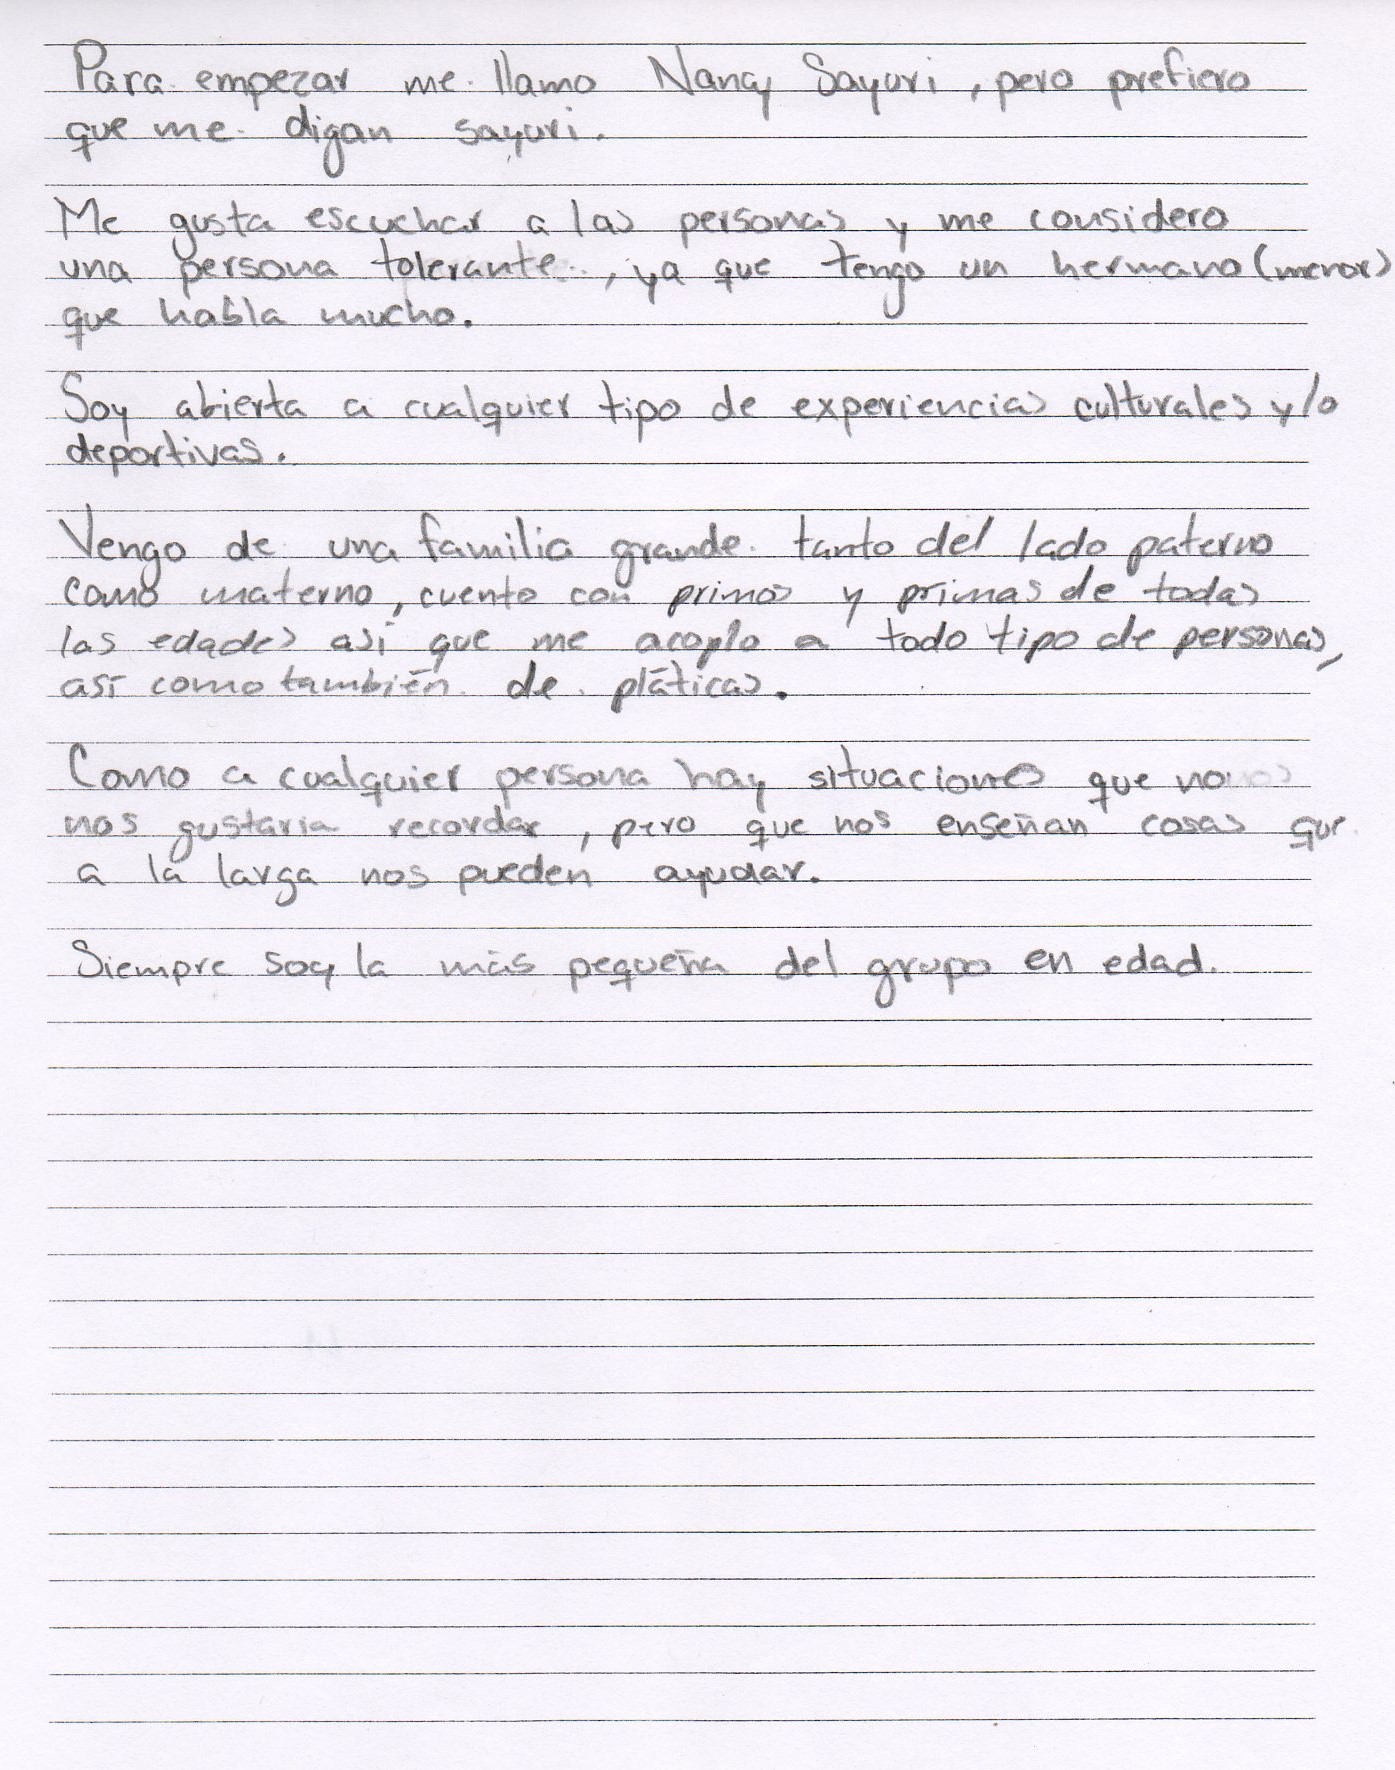 Para empezar me llamo Nancy Sayuri, pero prefiero
que me digan sayuri.
Me gusta escuchar a las personas y me considero
una persona tolerante, ya que tengo un hermano (menor)
que habla mucho.
Soy abierta a cualquier tipo de experiencias culturales y/o
deportivas.
Vengo de una familia grande tanto del lado paterno
como materno, cuento con primos y primas de todas
las edades así que me acoplo a todo tipo de personas,
así como también de pláticas.
Como a cualquier persona hay situaciones que no
nos gustaria recordar, pero que nos enseñan cosas que
a la larga nos pueden ayudar.
Siempre soy la más pequeña del grupo en edad.